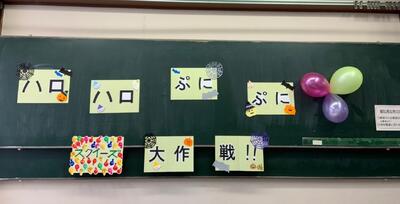 ハロ ハロ ぷに ぷに
スクイーズ 大作 戦!!